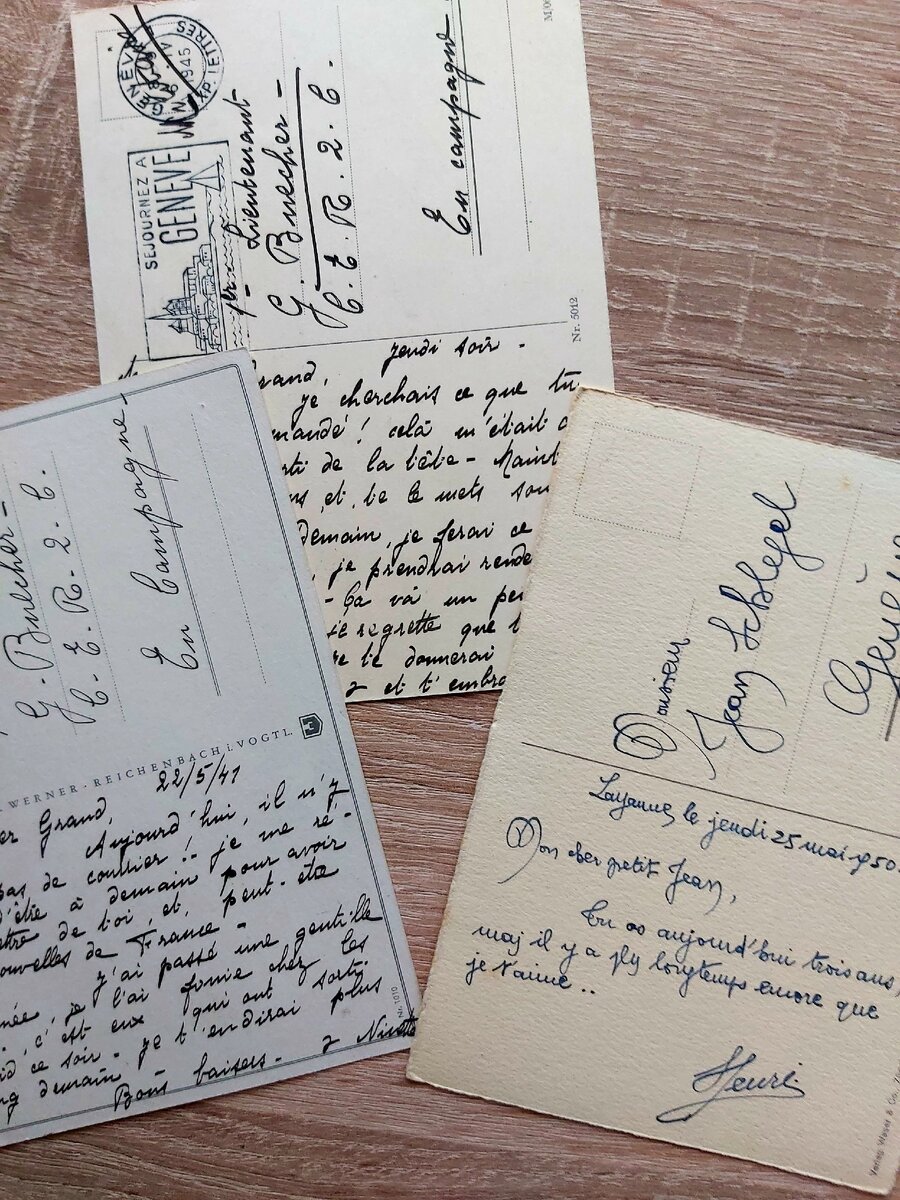 GENÈVE
1945
EXP. LETTRES
SEJOURNEZ A
GENÈVE
Lieutenant
G. Buecher -
C. E. R. 2. C.
En campagne
Nr. 5012
rand, jeudi soir -
je cherchais ce que tu
mandé ! celà m'était
rti de la tête - Maint
ns et te le mets sou
demain, je ferai ce
, je prendrai rende
- Ça va un peu
je regrette que
re te donnerai
et t'embra
G. Buecher -
C. E. R. 2. C.
En Campagne -
WERNER · REICHENBACH i. VOGTL.
er Grand, 22/5/41
Aujourd'hui, il n'y
pas de courrier !! je me ré-
d'être à demain pour avoir
ettre de toi, et, peut-être
ouvelles de France -
j'ai passé une gentille
née, je l'ai finie chez les
id c'est eux qui ont sorti
ng demain - je t'en dirai plus
Bons baisers - Ninette
No. 1010
Monsieur
Jean Schlegel
Genève
Lausanne, le jeudi 25 mai 1950.
Mon cher petit Jean,
Tu as aujourd'hui trois ans,
mais il y a plus longtemps encore que
je t'aime ..
Henri
Verlag Waser & Co.